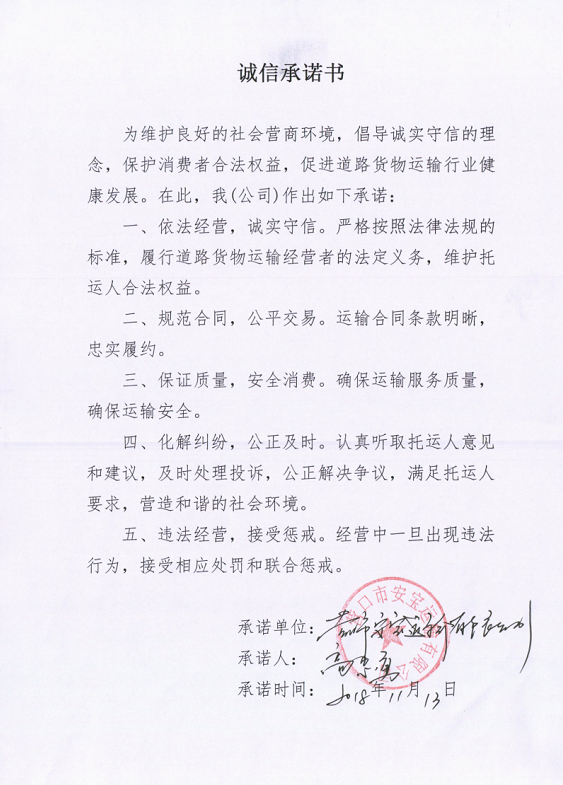 诚信承诺书
为维护良好的社会营商环境，倡导诚实守信的理
念，保护消费者合法权益，促进道路货物运输行业健
康发展。在此，我(公司)作出如下承诺：
一、依法经营，诚实守信。严格按照法律法规的
标准，履行道路货物运输经营者的法定义务，维护托
运人合法权益。
二、规范合同，公平交易。运输合同条款明晰，
忠实履约。
三、保证质量，安全消费。确保运输服务质量，
确保运输安全。
四、化解纠纷，公正及时。认真听取托运人意见
和建议，及时处理投诉，公正解决争议，满足托运人
要求，营造和谐的社会环境。
五、违法经营，接受惩戒。经营中一旦出现违法
行为，接受相应处罚和联合惩戒。
承诺单位：
口市安宝运 有限公
承诺人：高
承诺时间：2018年11月13日